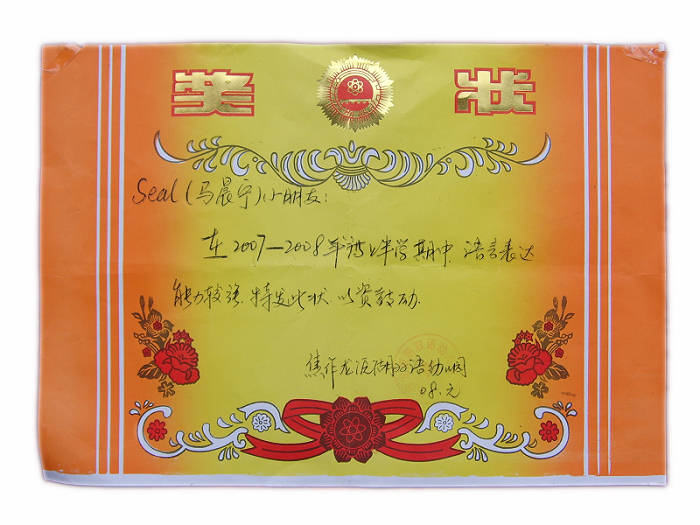 奖 状
Seal(马晨宁)小朋友:
在2007—2008年 上半学期中 语言表达
能力较强.特发此状.以资鼓励.
焦作龙源湖 语幼儿园
08.元